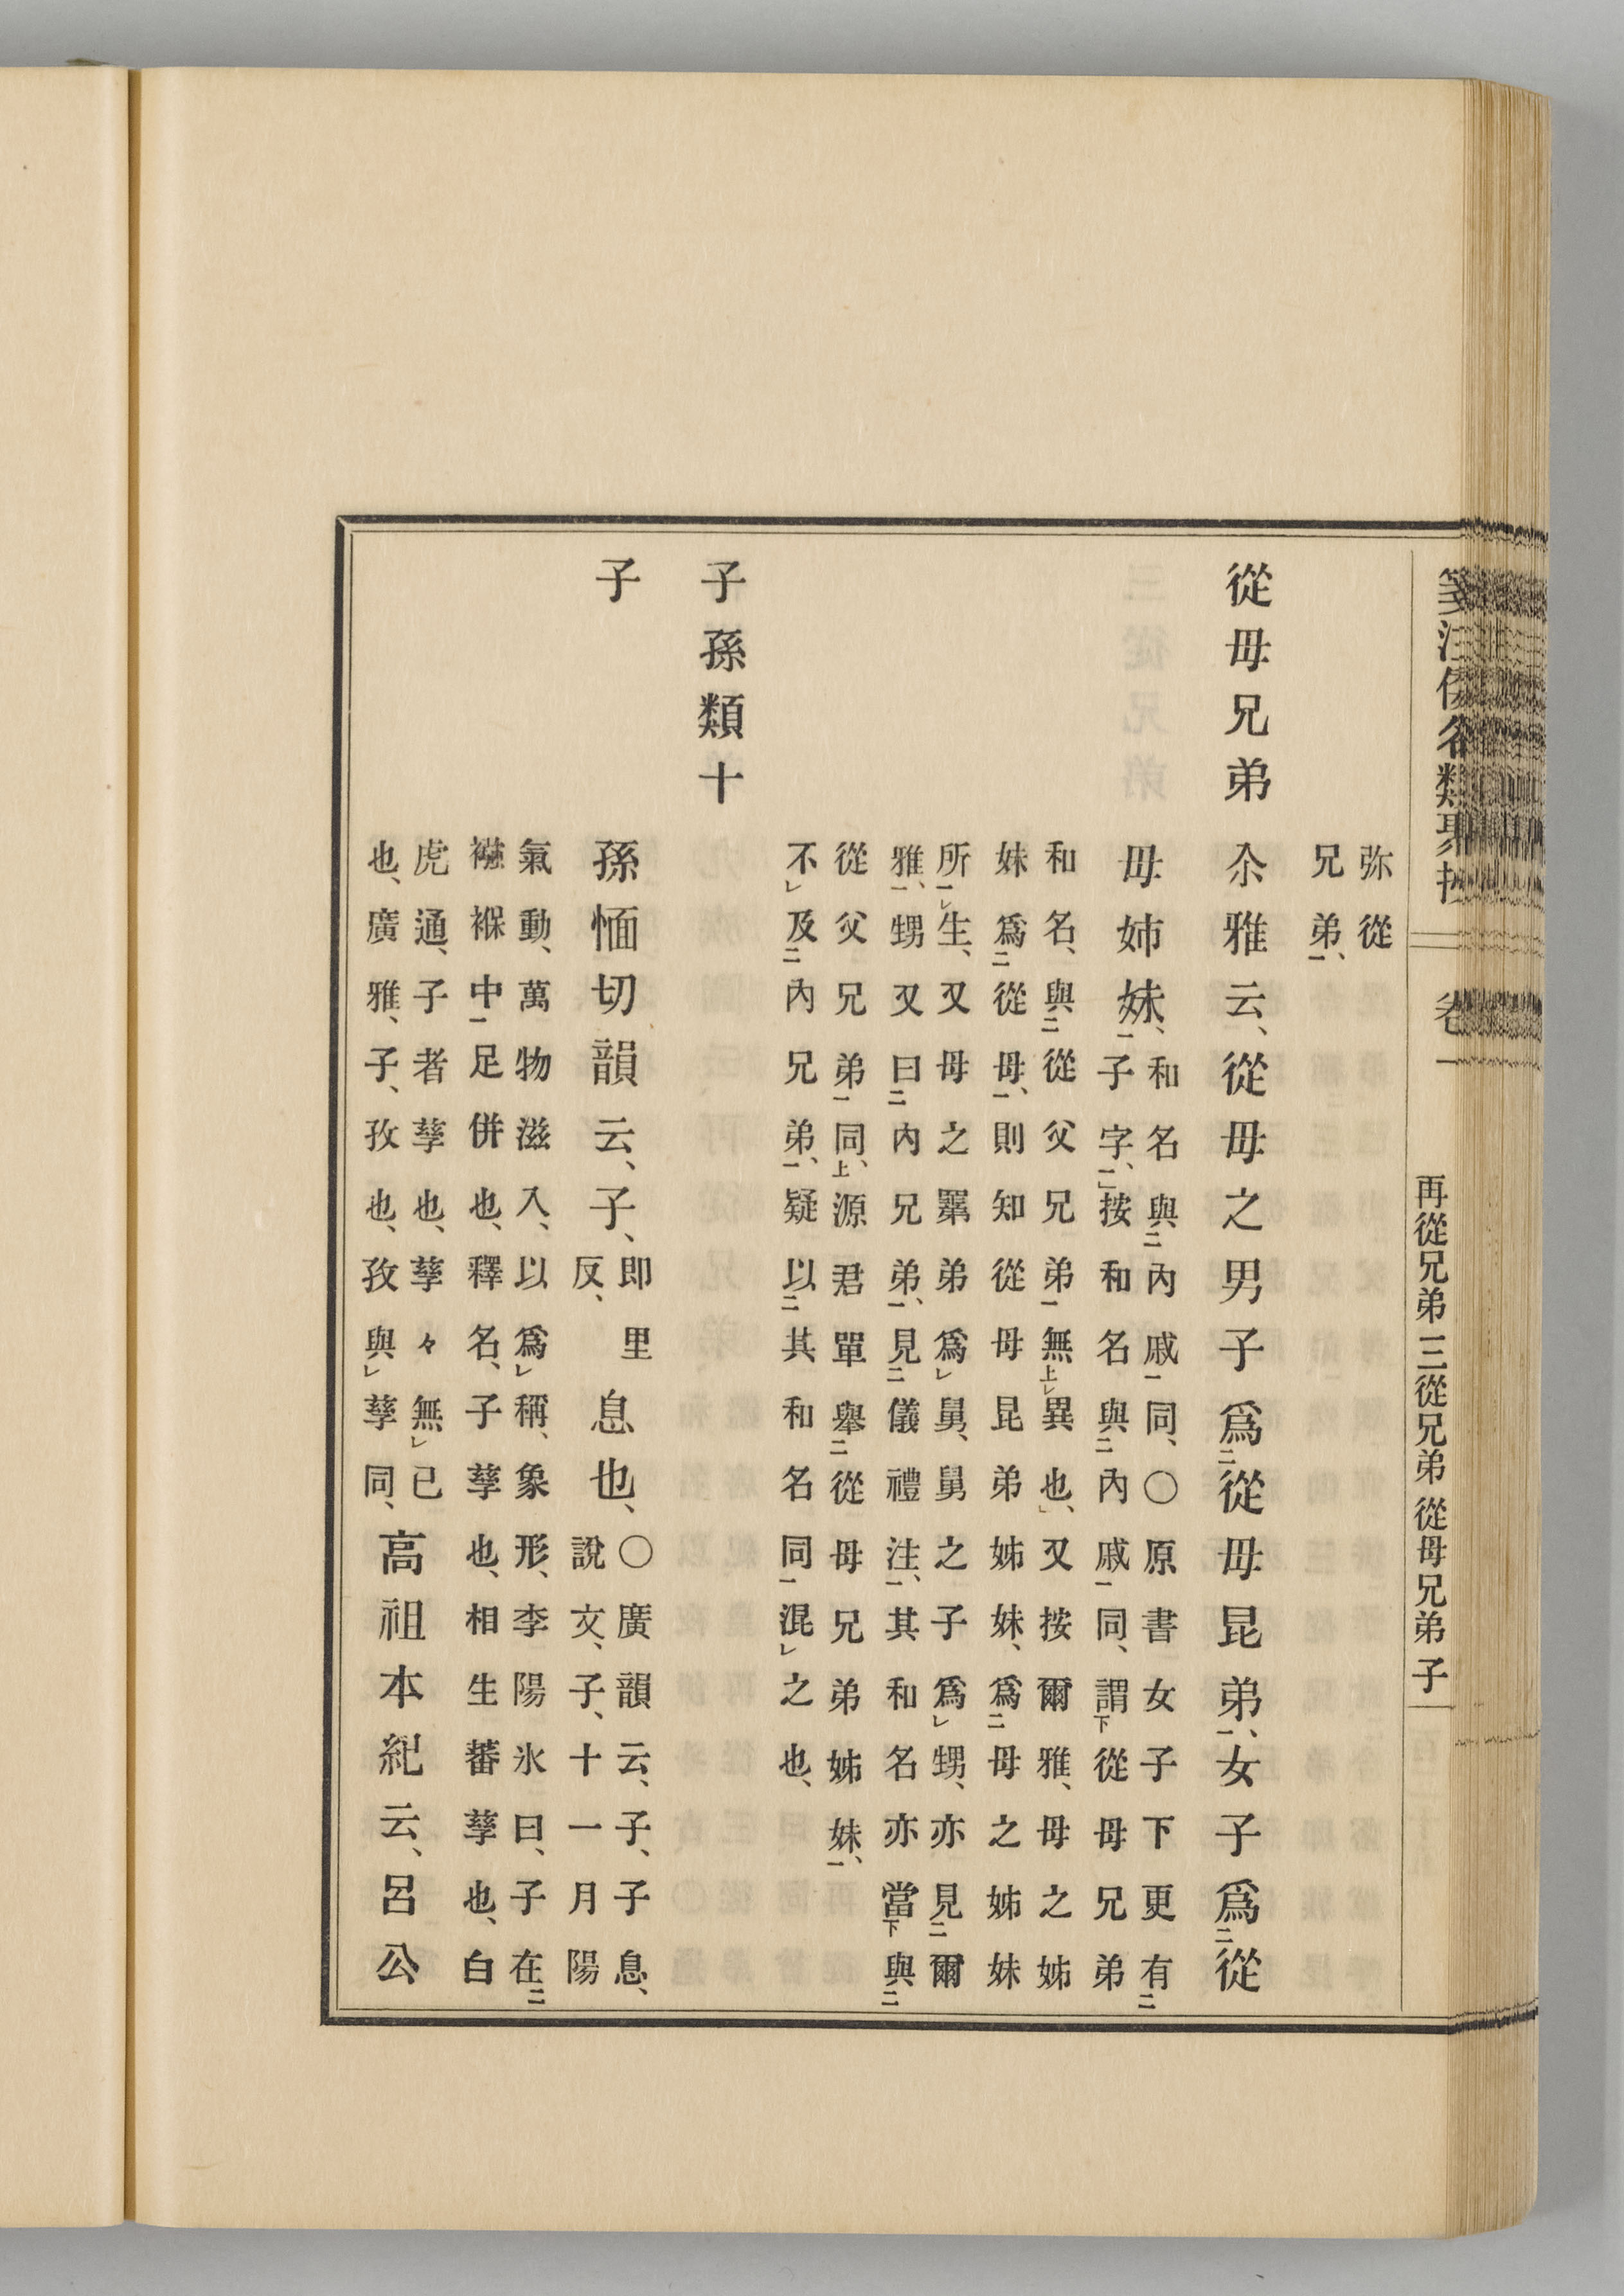 再從兄弟 三從兄弟 從母兄弟 子
弥從
兄弟一、
從母兄弟 尒雅云、從母之男子爲二從母昆弟一、女子爲二從
母姉妹一、
和名與二內戚一同、〇原書女子下更有二
子字一、按和名與二內戚一同、謂下從母兄弟
和名、與二從父兄弟一無上レ異也、又按爾雅、母之姊
妹爲二從母一、則知從母昆弟姊妹、爲二母之姊妹
所一レ生、又母之羃弟爲レ舅、舅之子爲レ甥、亦見二爾
雅一、甥又曰二內兄弟一、見二儀禮注一、其和名亦當下與二
從父兄弟一同上、源君單舉二從母兄弟姊妹一、
不レ及二內兄弟一、疑以二其和名同一混レ之也、
子孫類十
子 孫愐切韻云、子、卽里反、息也、
〇廣韻云、子、子息、
說文、子、十一月陽
氣動、萬物滋入、以爲レ稱、象形、李陽氷曰、子在二
襁褓中一足併也、釋名、子孳也、相生蕃孳也、白
虎通、子者孳也、孳々無レ已
也、廣雅、子、孜也、孜與レ孳同、
高祖本紀云、呂公